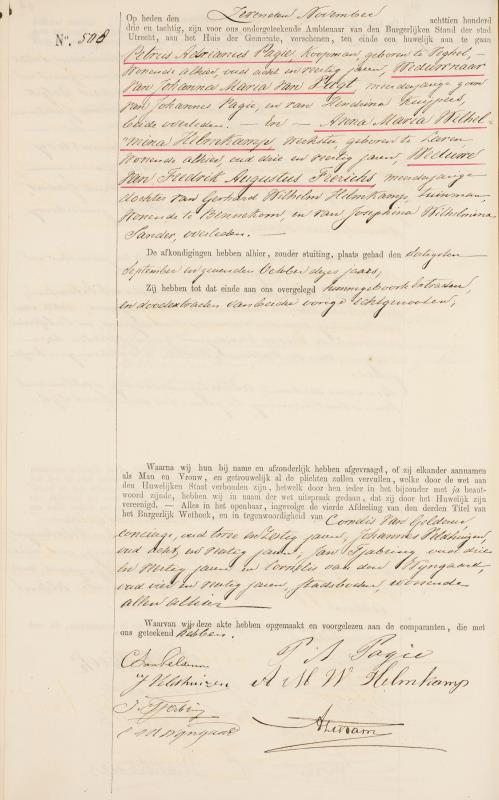 Op heden den Zevenden November achttien honderd
N°. 508 drie en tachtig, zijn voor ons ondergeteekende Ambtenaar van den Burgerlijken Stand der stad
Utrecht, aan het Huis der Gemeente, verschenen, ten einde een huwelijk aan te gaan
Petrus Adrianus Pagie, Koopman, geboren te Veghel,
wonende alhier, oud acht en veertig jaren, Weduwnaar
van Johanna Maria van Vugt, meerderjarige zoon
van Johannes Pagie, en van Hendrina Kuijpers,
beide overleden. — En — Anna Maria Wilhel-
mina Helmkamp, werkster, geboren te Laren
wonende alhier, oud drie en veertig jaren, Weduwe
van Fredrik Augustus Frerichs, meerderjarige
dochter van Gerhard Wilhelm Helmkamp, tuinman,
wonende te Bennekom, en van Josephina Wilhelmina
Sander, overleden. —
De afkondigingen hebben alhier, zonder stuiting, plaats gehad den dertigsten
September en zevenden October dezes jaars,
Zij hebben tot dat einde aan ons overgelegd hunne geboorte Extracten,
en doodextracten van beider vorige echtgenooten;
Waarna wij hun bij name en afzonderlijk hebben afgevraagd, of zij elkander aannamen
als Man en Vrouw, en getrouwelijk al de plichten zullen vervullen, welke door de wet aan
den Huwelijken Staat verbonden zijn, hetwelk door hen ieder in het bijzonder met ja beant-
woord zijnde, hebben wij in naam der wet uitspraak gedaan, dat zij door het Huwelijk zijn
vereenigd. — Alles in het openbaar, ingevolge de vierde Afdeeling van den derden Titel van
het Burgerlijk Wetboek, en in tegenwoordigheid van Cornelis van Gelderen,
concierge, oud twee en zestig jaren, Johannes Veldhuizen,
oud acht en veertig jaren, Jan Tjabring oud drie
en veertig jaren en Cornelis van den Wijngaard,
oud vier en veertig jaren, stadsboden, wonende
allen alhier
Waarvan wij deze akte hebben opgemaakt en voorgelezen aan de comparanten, die met
ons geteekend hebben.
P A Pagie
J Veldhuizen A M W Helmkamp